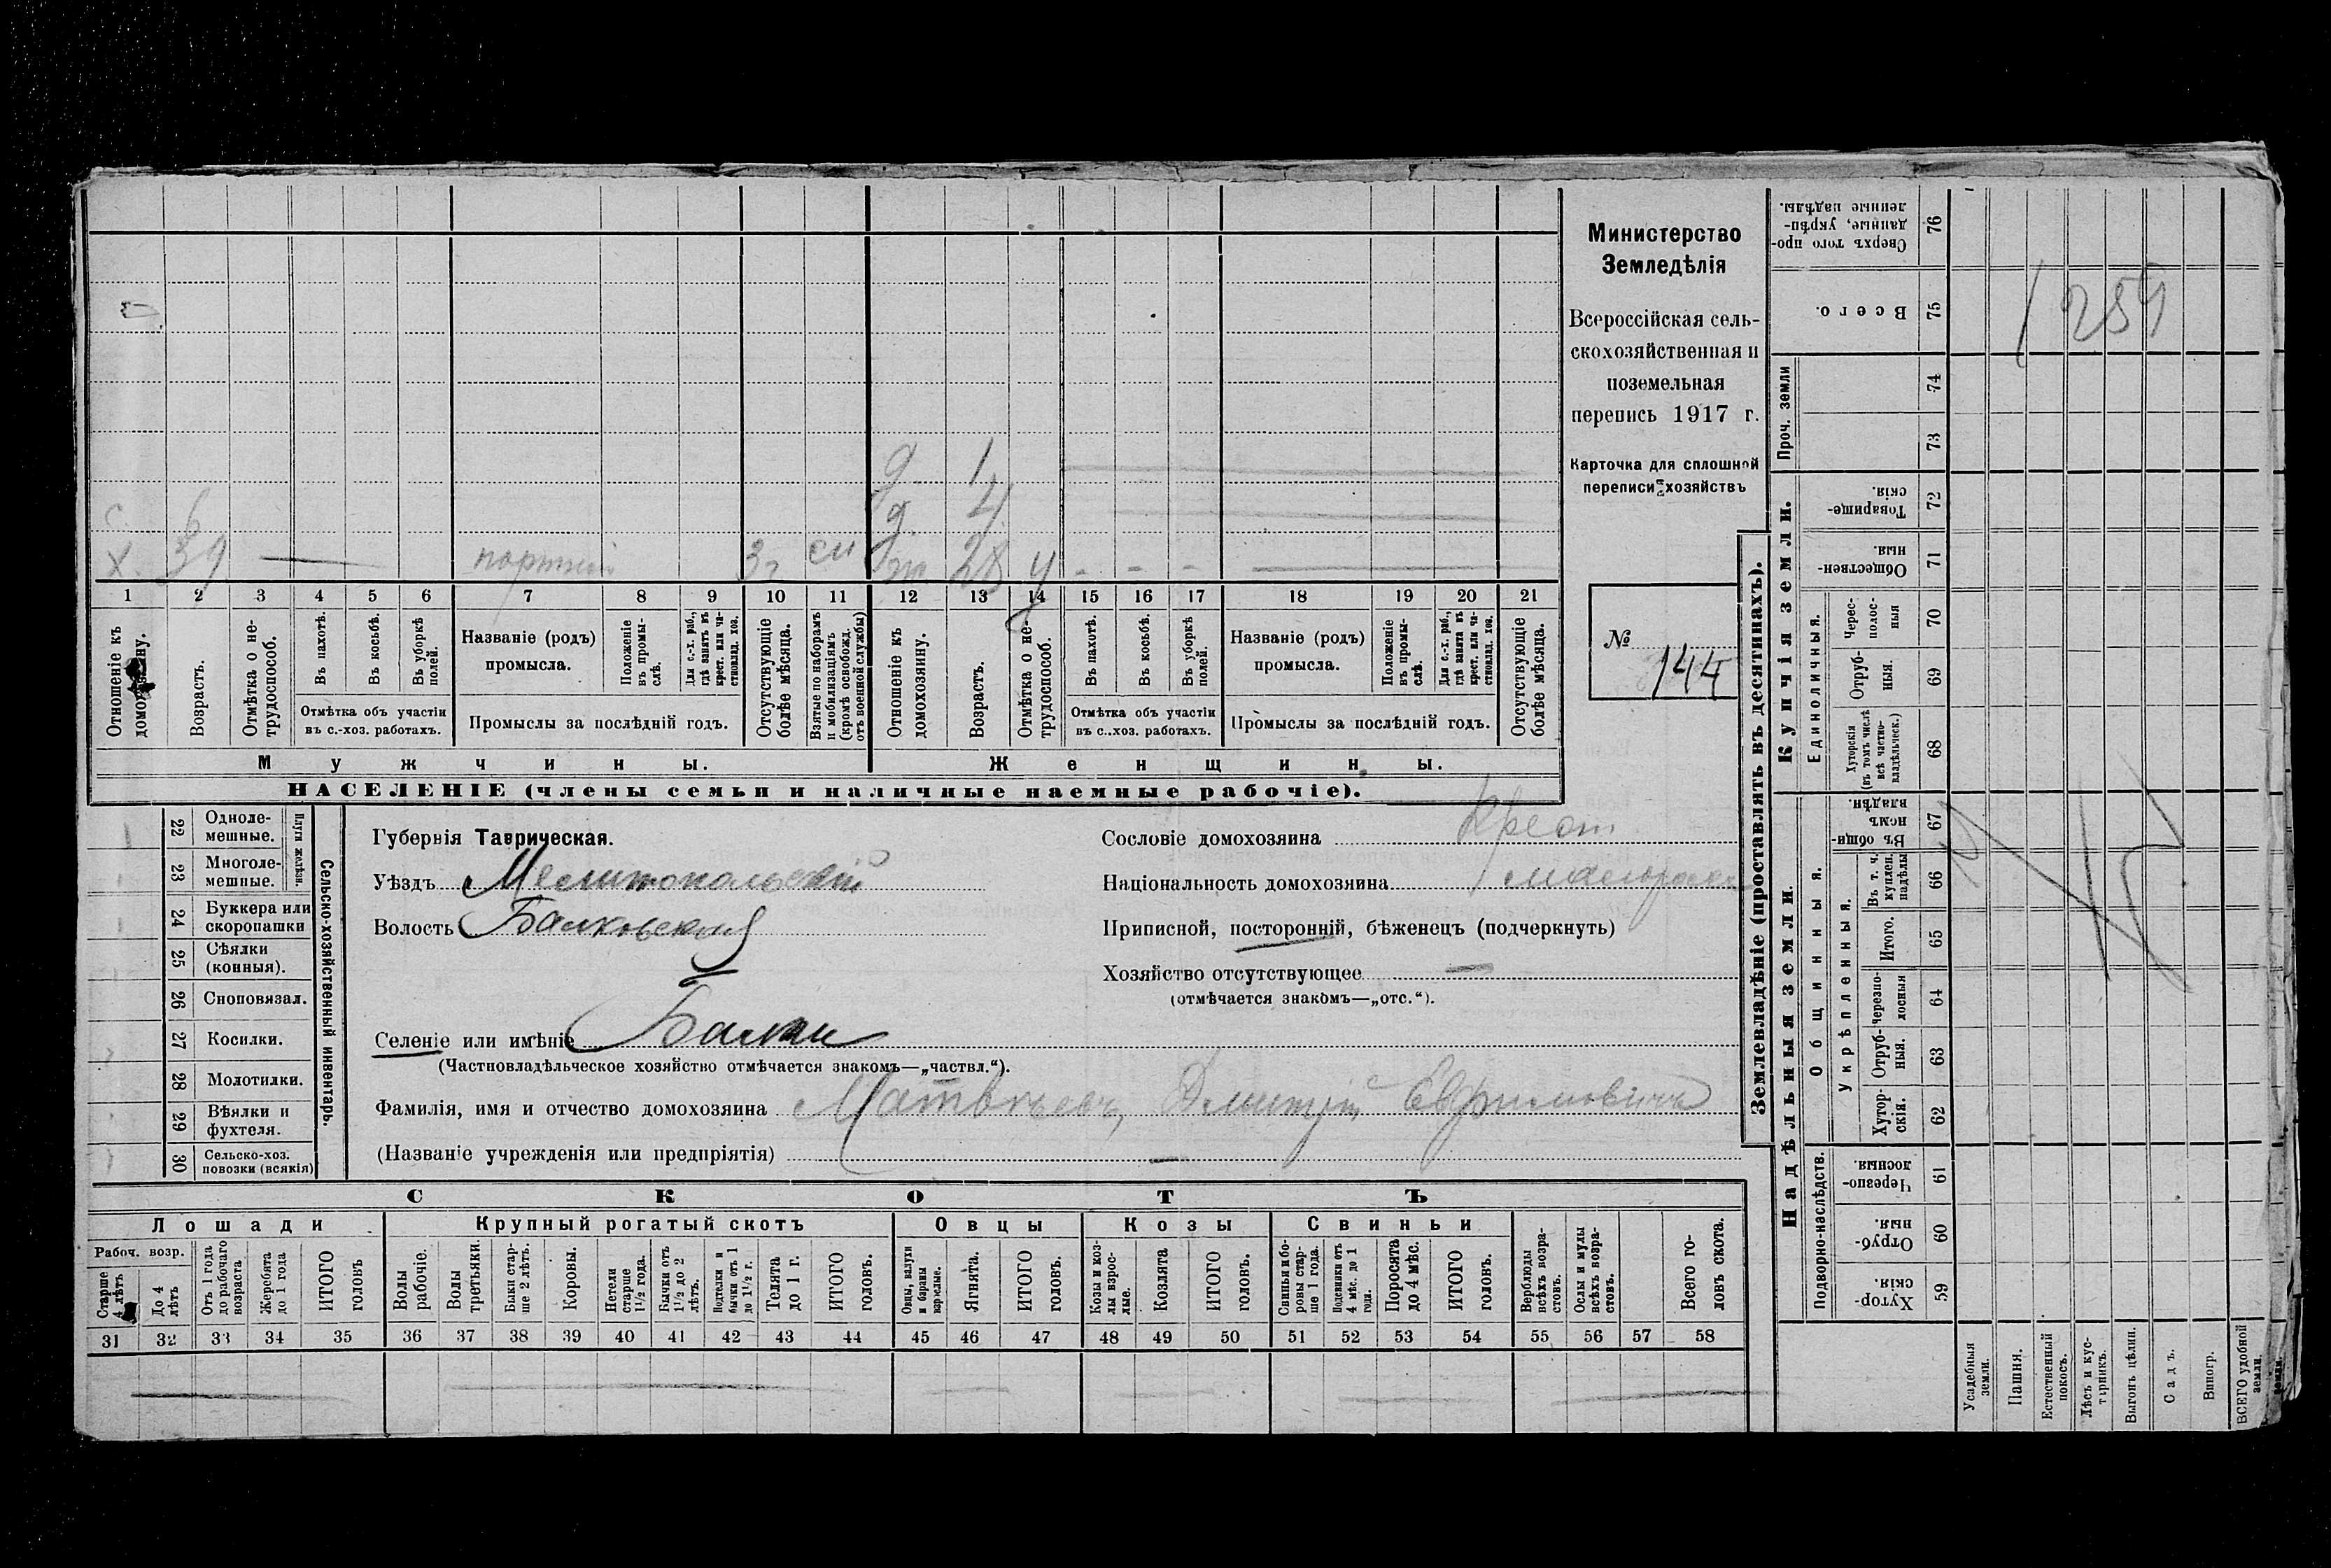 Министерство
Земледѣлія
Всероссійская сель-
скохозяйственная и
поземельная
перепись 1917 г.
Карточка для сплошной
переписи хозяйствъ
№ 144
д 1
д 4
с 6
х. 39 — портной 3г ж. 28 - - - —
1 2 3 4 5 6 7 8 9 10 11 12 13 14 15 16 17 18 19 20 21
Отношеніе къ домохозяину.
Возрастъ.
Отмѣтка о не-трудоспособ.
Въ пахотѣ.
Въ косьбѣ.
Въ уборкѣ полей.
Отмѣтка объ участіи
въ с.-хоз. работахъ.
Названіе (родъ)
промысла.
Положеніе въ промы-слѣ.
Для с.-х. раб., гдѣ занятъ въ крест. или ча-стновлад. хоз.
Промыслы за послѣдній годъ.
Отсутствующіе болѣе мѣсяца.
Взятые по наборамъ и мобилизаціямъ (кромѣ освобожд. отъ военной службы)
Отношеніе къ домохозяину.
Возрастъ.
Отмѣтка о не-трудоспособ.
Въ пахотѣ.
Въ косьбѣ.
Въ уборкѣ полей.
Отмѣтка объ участіи
въ с..хоз. работахъ.
Названіе (родъ)
промысла.
Положеніе въ промы-слѣ.
Для с.-х. раб., гдѣ занята въ крест. или ча-стновлад. хоз.
Промыслы за послѣдній годъ.
Отсутствующіе болѣе мѣсяца.
Мужчины. Женщины.
НАСЕЛЕНІЕ (члены семьи и наличные наемные рабочіе).
22 Одноле-мешные.
23 Многоле-мешные.
Плуги желѣзн.
24 Буккера или скоропашки
25 Сѣялки (конныя).
26 Сноповязал.
27 Косилки.
28 Молотилки.
29 Вѣялки и фухтеля.
30 Сельско-хоз. повозки (всякія)
Сельско-хозяйственный инвентарь.
Губернія Таврическая.
Уѣздъ Мелитопольскій
Волость Балковская
Селеніе или имѣніе Балки
(Частновладѣльческое хозяйство отмѣчается знакомъ—„частвл.“).
Фамилія, имя и отчество домохозяина Матвѣевъ, Дмитрій Евфимовичъ
(Названіе учрежденія или предпріятія) —
Сословіе домохозяина Крест
Національность домохозяина малоросс
Приписной, посторонній, бѣженецъ (подчеркнуть)
Хозяйство отсутствующее —
(отмѣчается знакомъ—„отс.“).
СКОТЪ
Лошади Крупный рогатый скотъ Овцы Козы Свиньи
Рабоч. возр.
Старше 4 лѣтъ
До 4 лѣтъ
Отъ 1 года до рабочаго возраста
Жеребята до 1 года
ИТОГО головъ
Волы рабочіе.
Волы третьяки.
Быки стар-ше 2 лѣтъ.
Коровы.
Нетели старше 1½ года.
Бычки отъ 1½ до 2 лѣтъ.
Подтелки и бычки отъ 1 до 1½ г.
Телята до 1 г.
ИТОГО головъ.
Овцы, валухи и бараны взрослые.
Ягнята.
ИТОГО головъ.
Козы и коз-лы взрос-лые.
Козлята
ИТОГО головъ.
Свиньи и бо-ровы стар-ше 1 года.
Подсвинки отъ 4 мѣс. до 1 года.
Поросята до 4 мѣс.
ИТОГО головъ.
Верблюды всѣхъ возра-стовъ.
Ослы и мулы всѣхъ возра-стовъ.
Всего го-ловъ скота.
31 32 33 34 35 36 37 38 39 40 41 42 43 44 45 46 47 48 49 50 51 52 53 54 55 56 57 58
Землевладѣніе (проставлять въ десятинахъ).
Сверхъ того про-данные, укрѣп-ленные надѣлы. 76
Всего. 75
1259
Проч. земли 74 73
Купчія земли.
Товарище-скія. 72
Обществен-ныя. 71
Единоличныя.
Черес-полос-ныя 70
Отруб-ныя. 69
Хуторскія (въ томъ числѣ всѣ частно-владѣльческ.) 68
Надѣльныя земли.
Общинныя.
Въ общи-номъ владѣн. 67
Укрѣпленныя.
Въ т. ч. куплен. надѣлы 66
Итого. 65
Черезпо-лосныя 64
Отруб-ныя. 63
Хутор-скія. 62
Подворно-наслѣдств.
Черезпо-лосныя. 61
Отруб-ныя. 60
Хутор-скія. 59
Усадебныя земли.
Пашня.
Естественный покосъ.
Лѣсъ и кус-тарникъ.
Выгонъ цѣлин.
Садъ.
Виногр.
ВСЕГО удобной земли.